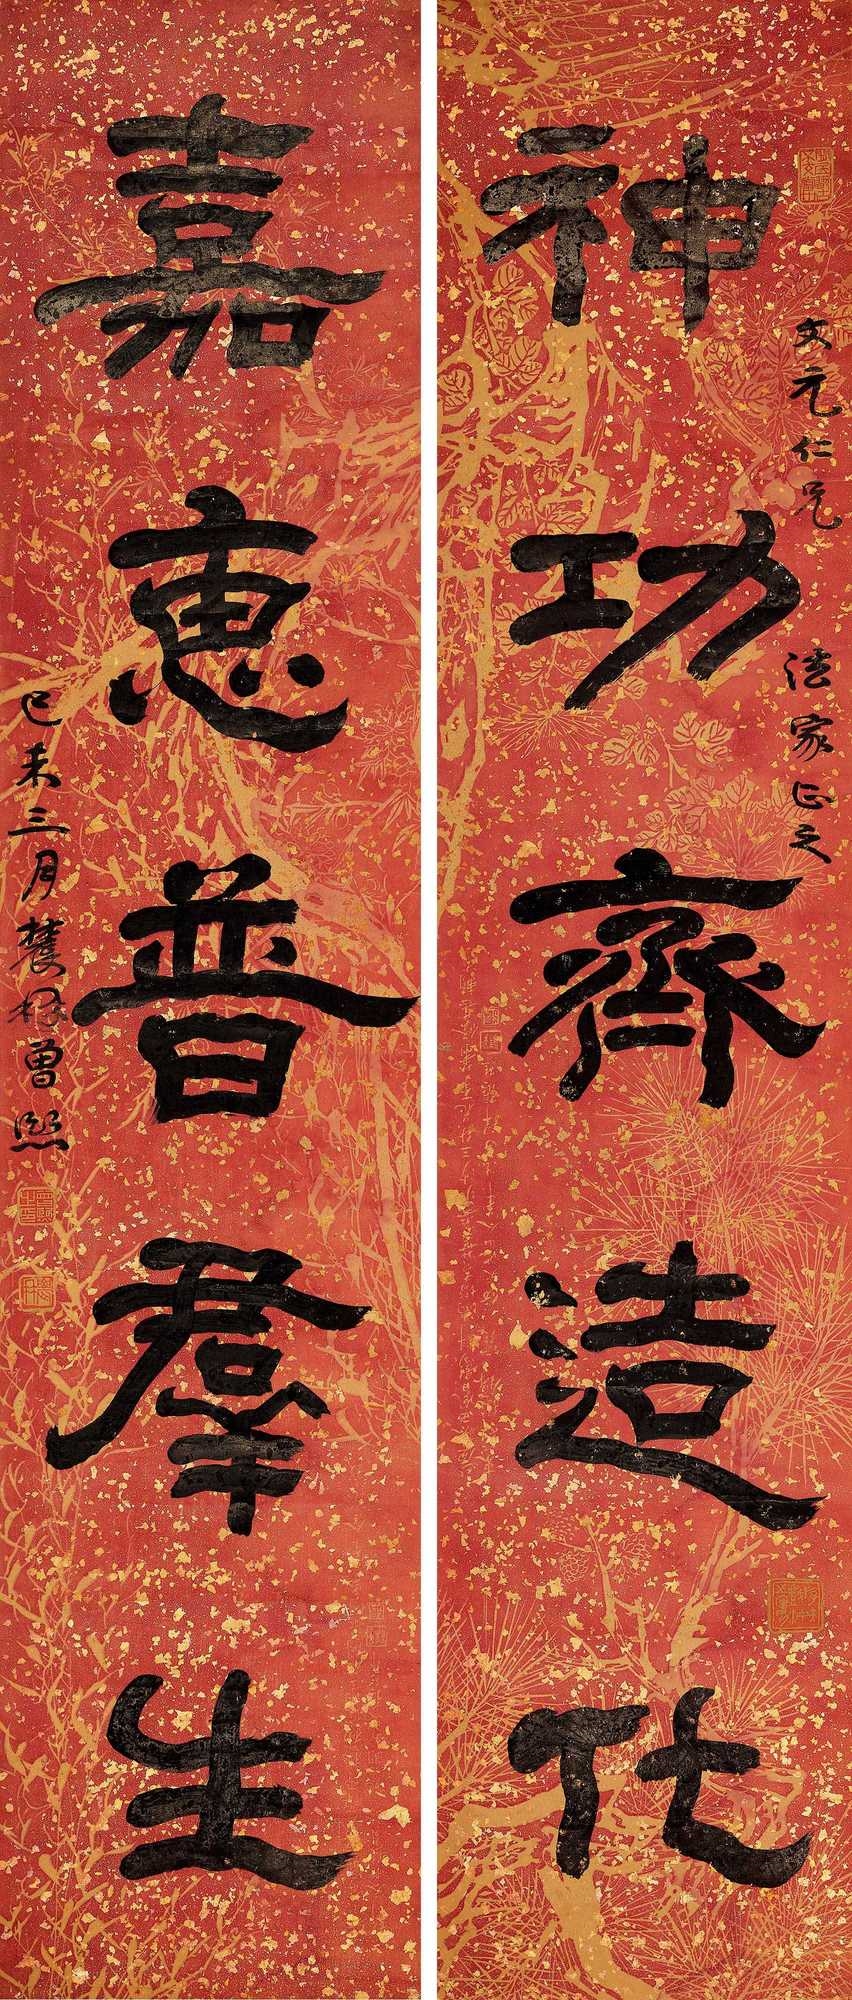 文元仁兄
法家正之
神功齊造化
嘉惠普羣生
己未三月農髯曾熙